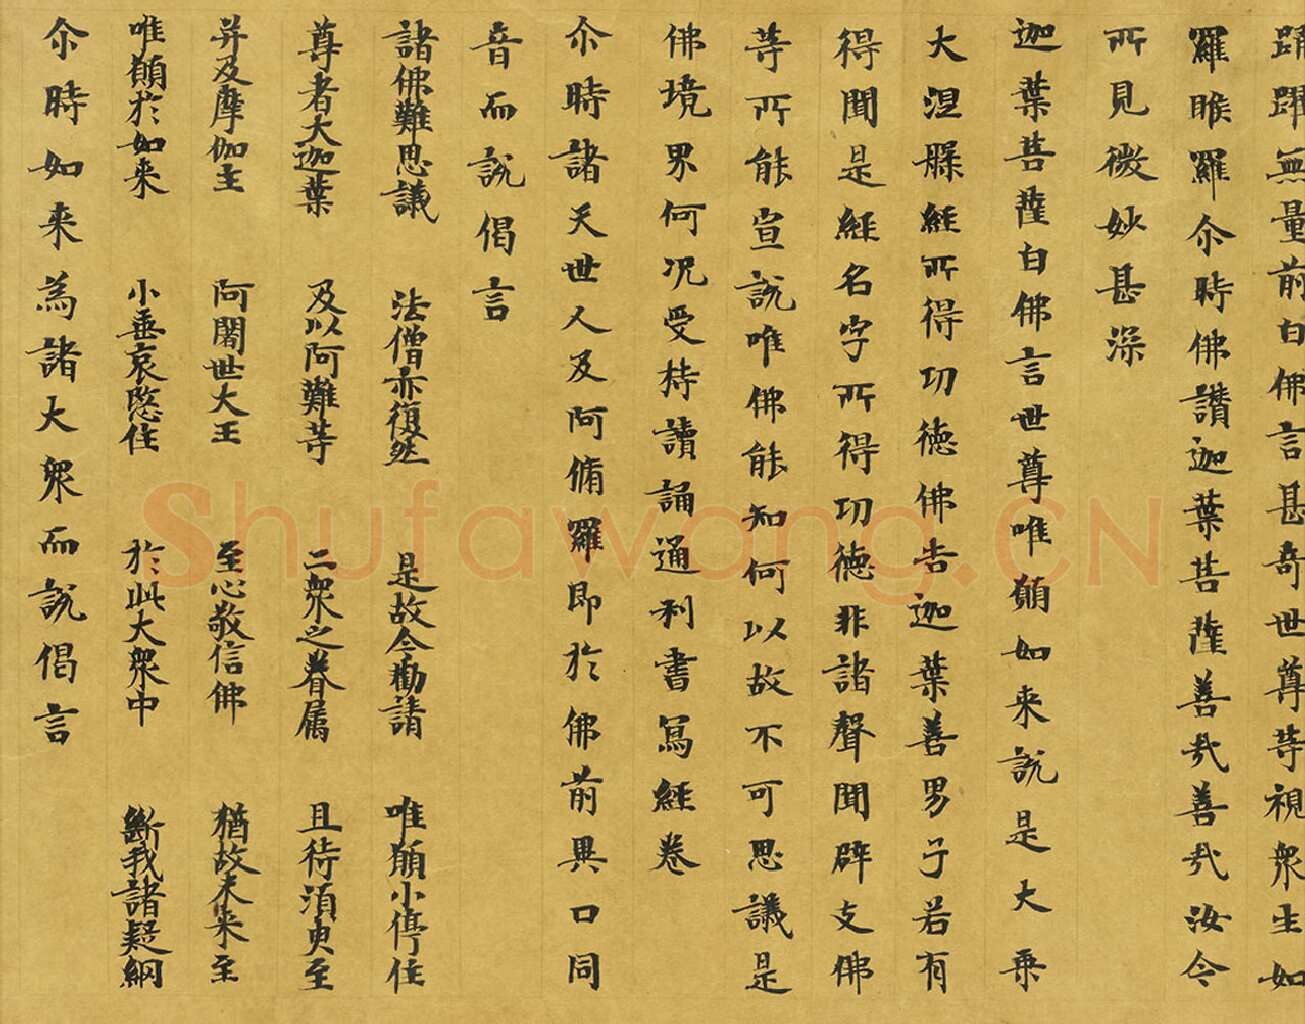 踊躍無量前白佛言甚奇世尊等視衆生如
羅睺羅尒時佛讃迦葉菩薩善㢤善㢤汝今
所見微妙甚深
迦葉菩薩白佛言世尊唯願如来說是大乗
大涅槃経所得功徳佛告迦葉善男子若有
得聞是経名字所得功徳非諸聲聞辟支佛
等所能宣說唯佛能知何以故不可思議是
佛境界何况受持讀誦通利書寫経卷
尒時諸天世人及阿脩羅即於佛前異口同
音而說偈言
諸佛難思議 法僧亦復然 是故今勸請 唯願小停住
尊者大迦葉 及以阿難等 二衆之眷属 且待湏臾至
并及摩伽主 阿闍世大王 至心敬信佛 猶故未来至
唯願於如来 小垂哀愍住 於此大衆中 斷我諸疑網
尒時如来為諸大衆而說偈言
Shufawang.CN